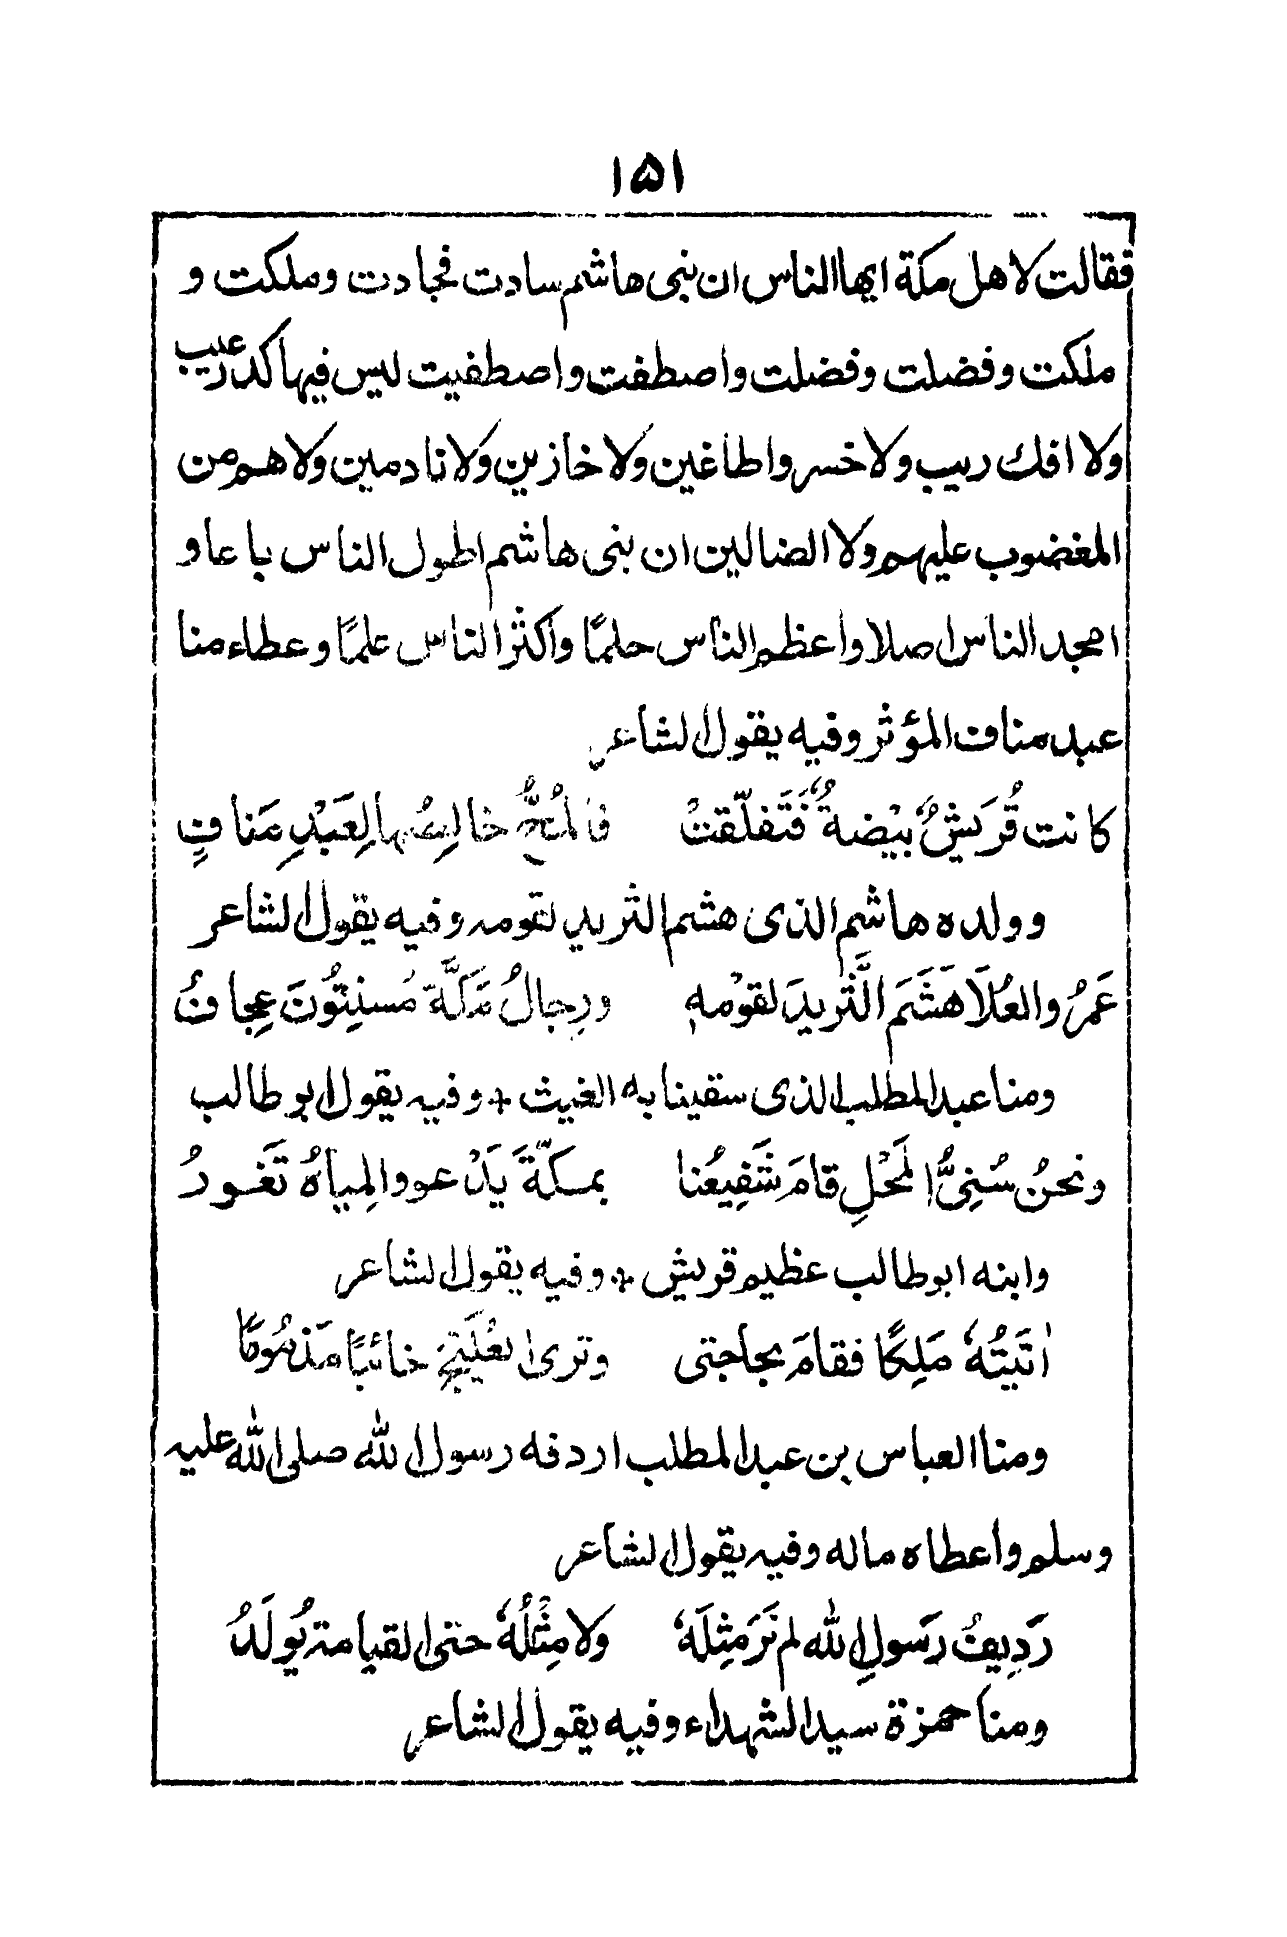 ۱۵۱
فقالت لاهل مكة ايها الناس ان بنى هاشم سادت فجادت وملكت و
ملكت وفضلت وفضلت واصطفت واصطفيت ليس فيها كدر عيب
ولا افك ريب ولا خسروا طاغين ولا خازين ولا نادمين ولا هم من
المغضوب عليهم ولا الضالين ان بنى هاشم اطول الناس باعا و
امجد الناس اصلا واعظم الناس حلمًا واكثر الناس علمًا وعطاء منا
عبد مناف المؤثر وفيه يقول الشاعر
كانت قُرَيشٌ بيْضةٌ فَتَفلّقتْ فالمُخُّ خالِصُها لِعَبْدِ مَنافٍ
وولده هاشم الذى هشم الثريد لقومه وفيه يقول الشاعر
عَمرُ والعُلَا هَشَمَ الثَّريدَ لقوْمهٖ ورِجالُ مَكَّةَ مُسنِتُونَ عِجافُ
ومنا عبد المطلب الذى سقينا به الغيث + وفيه يقول ابو طالب
ونحنُ سُنِىُّ المَحْلِ قامَ شَفِيعُنا بمكّةَ يَدْعو والمِياهُ تَغورُ
وابنه ابو طالب عظيم قريش + وفيه يقول الشاعر
اٰتَيتُهٗ مَلِكًا فقامَ بحاجتى وترىٰ خائبًا مَذمُومًا
ومنا العباس بن عبد المطلب اردفه رسول الله صلى الله عليه
وسلم واعطاه ماله وفيه يقول الشاعر
رَدِيفُ رَسولِ الله لم نَرَ مِثلَهٗ ولا مِثْلُهٗ حتى القيامة يُولَدُ
ومنا حمزة سيد الشهداء وفيه يقول الشاعر